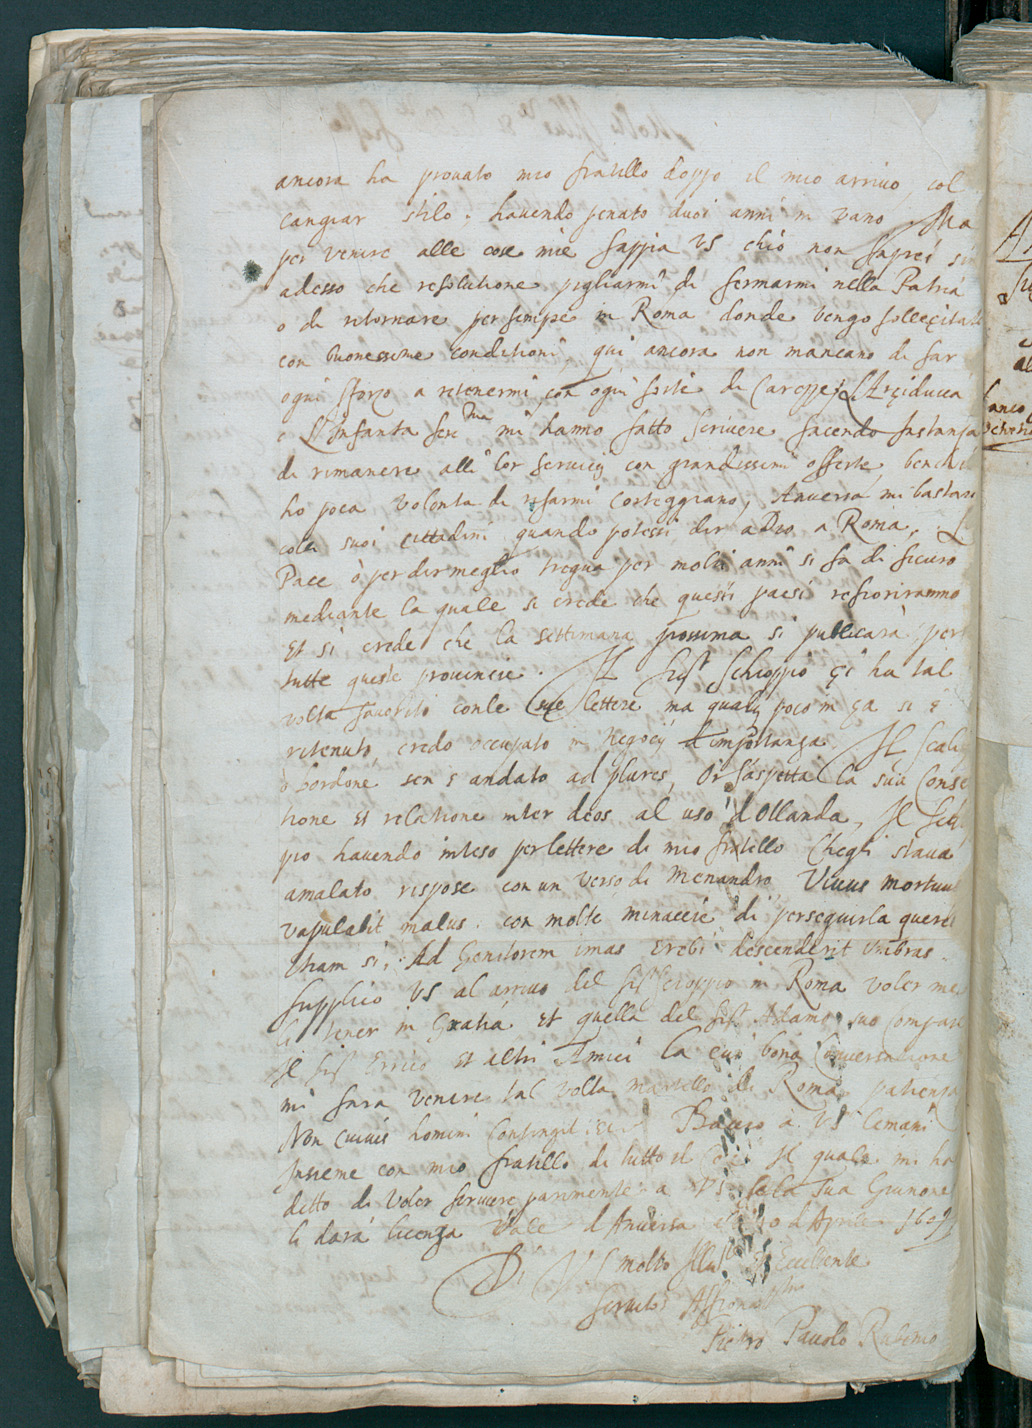 ancora ha prouato mio fratello doppo il mio arriuo, col
cangiar stilo, hauendo penato duoi anni in vano. Ma
per venire alle cose mie sappia VS ch'io non saprei
adesso che resolutione pigliarmi di fermarmi nella Patria
o di ritornare per sempre in Roma donde vengo sollecitato
con buonessime conditioni, qui ancora non mancano di far
ogni sforzo a retenermi con ogni sorte di Carezze, L'Arciducca
e L'Infanta Ser.ma mi hanno fatto scrivere facendo Instanza
di rimanere alli lor servicij con grandissime offerte, benche
ho poca volonta di rifarmi Corteggiano, Anversa mi bastara
colli suoi cittadini quando potessi dir a Dio a Roma, L
Pace ò per dir meglio tregua per molti anni si fa di sicuro
mediante la quale si crede che questi paesi refioriranno
Et si crede che la settimana prossima si publicarà per
tutte queste provincie. Il Sig.r Schioppio çi ha tal
volta favorito con le sue lettere, ma qualq poco in ça si è
ritenuto, credo occupato in Negocij d'importanza. Il Scali
o bordone sen è andato ad plures, Or s'aspetta la sua Conse
tione et relatione inter deos al uso d'Ollanda, Il Sciop
pio havendo inteso per lettere di mio fratello Chegli stava
amalato rispose con un verso di Menandro Vivus mortuus
vapulabit malus. con molte minaccie di perseguirla querel
Etiam si, Ad Genitorem imas Erebi descenderit Umbras.
Supplico VS al arrivo del Sig.r Scioppio in Roma voler me
li tener in Gratia et quella del Sig.r Adamo suo Compare
Il Sig.r Errico et altri Amici la cui bona Conversatione
mi fara venire tal volta martello di Roma, patienza
Non cuivis homini Contingit Et Baccio a VS le mani
Insieme con mio fratello di tutto il Core Il quale mi ha
ditto di voler scrivere parimente a VS se la sua Giunone
li darà licenza Vale d'Anversa il 10 d'Aprile 1609
Di VS molto Illus.re et Eccellente
Servitor Affettionat.mo
Pietro Pauolo Rubenio